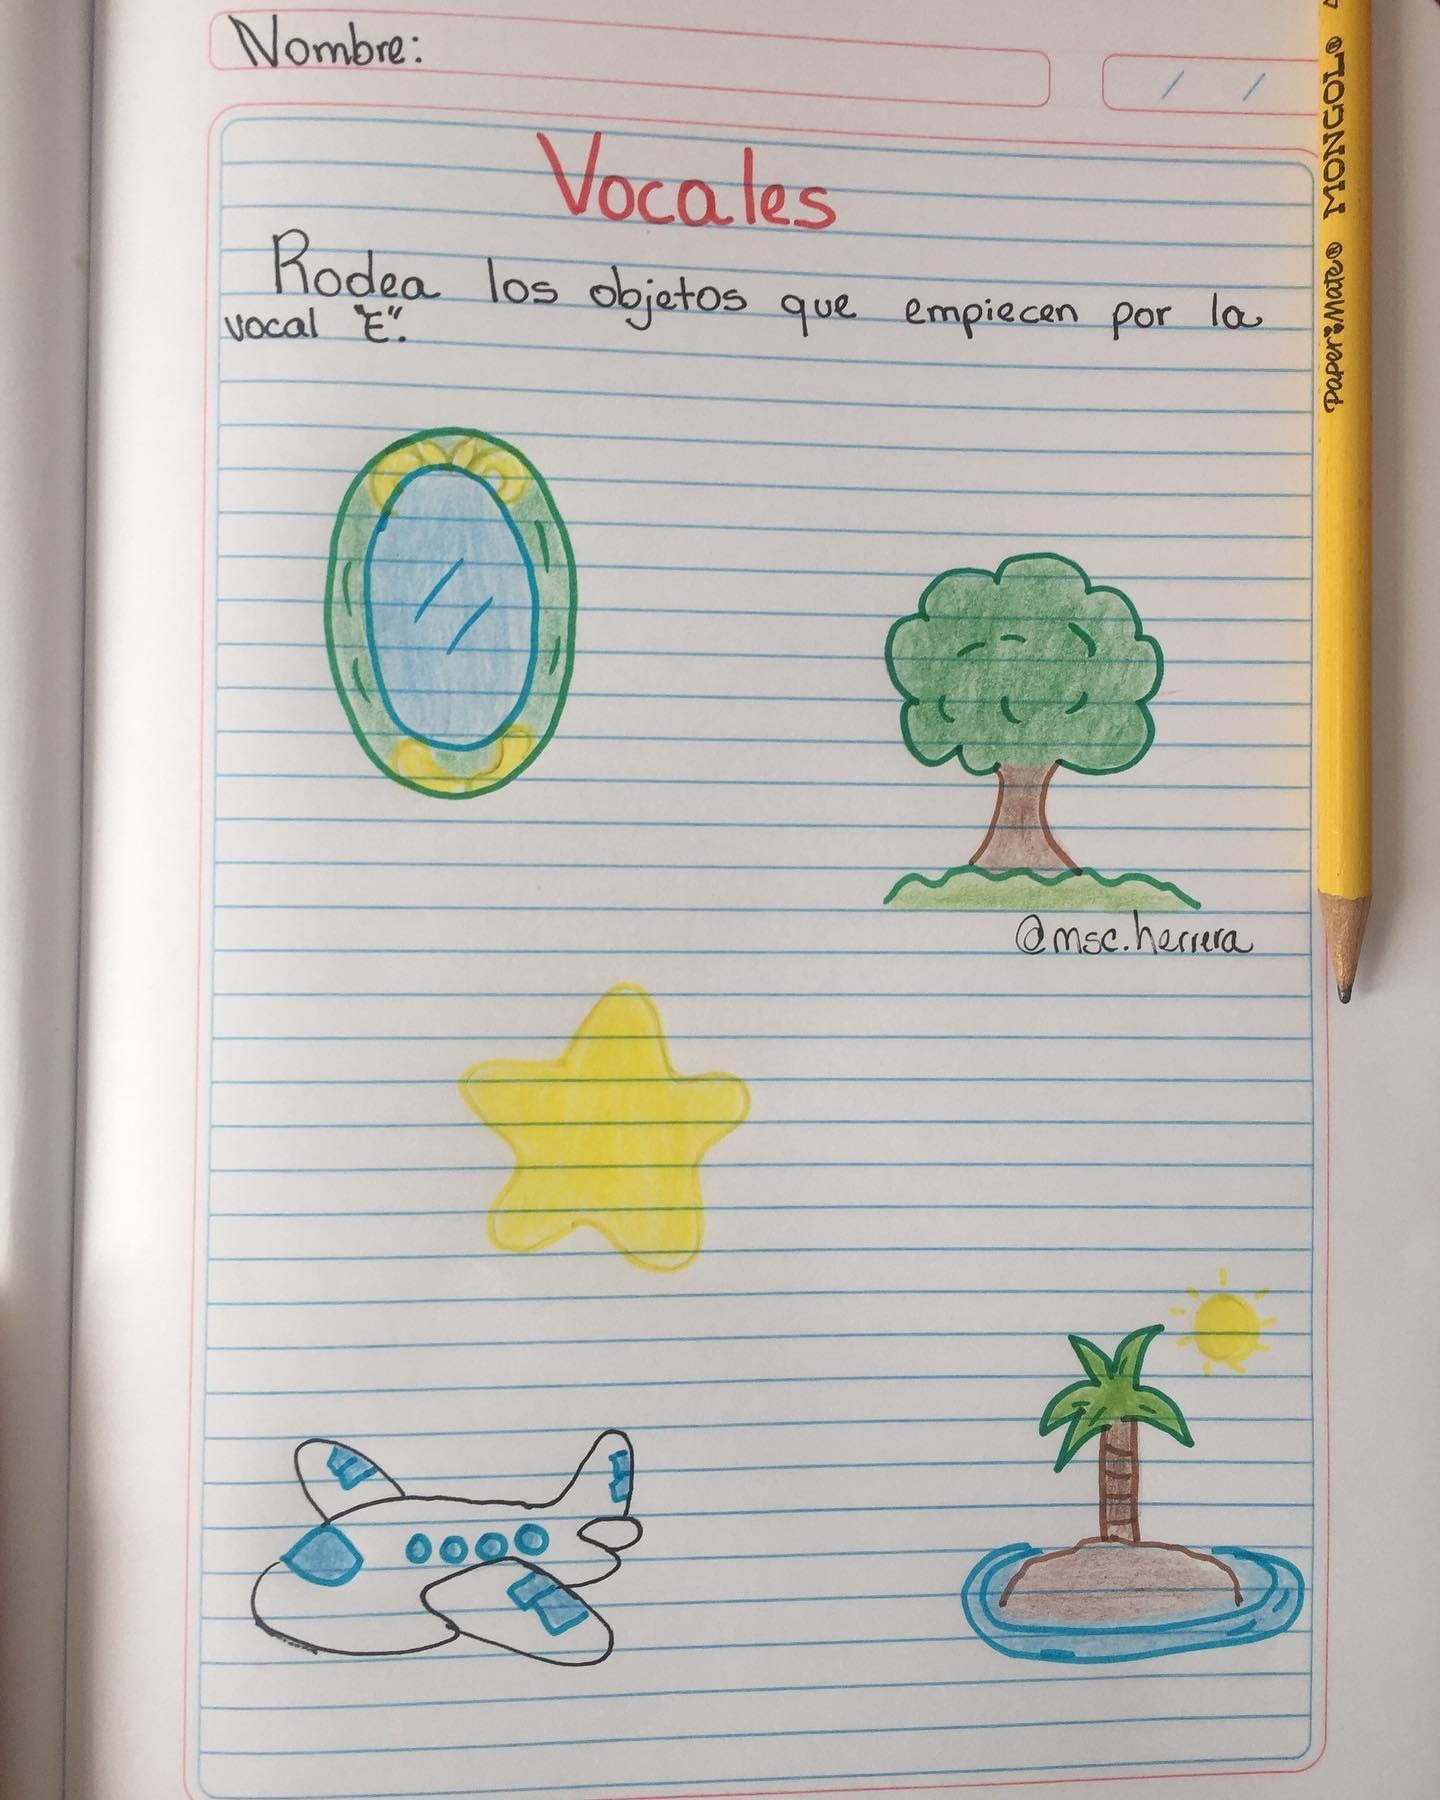 Nombre:
/ /
Vocales
Rodea los objetos que empiecen por la
vocal "E".
@msc.herrera
MONGOL®
Paper:Mate®